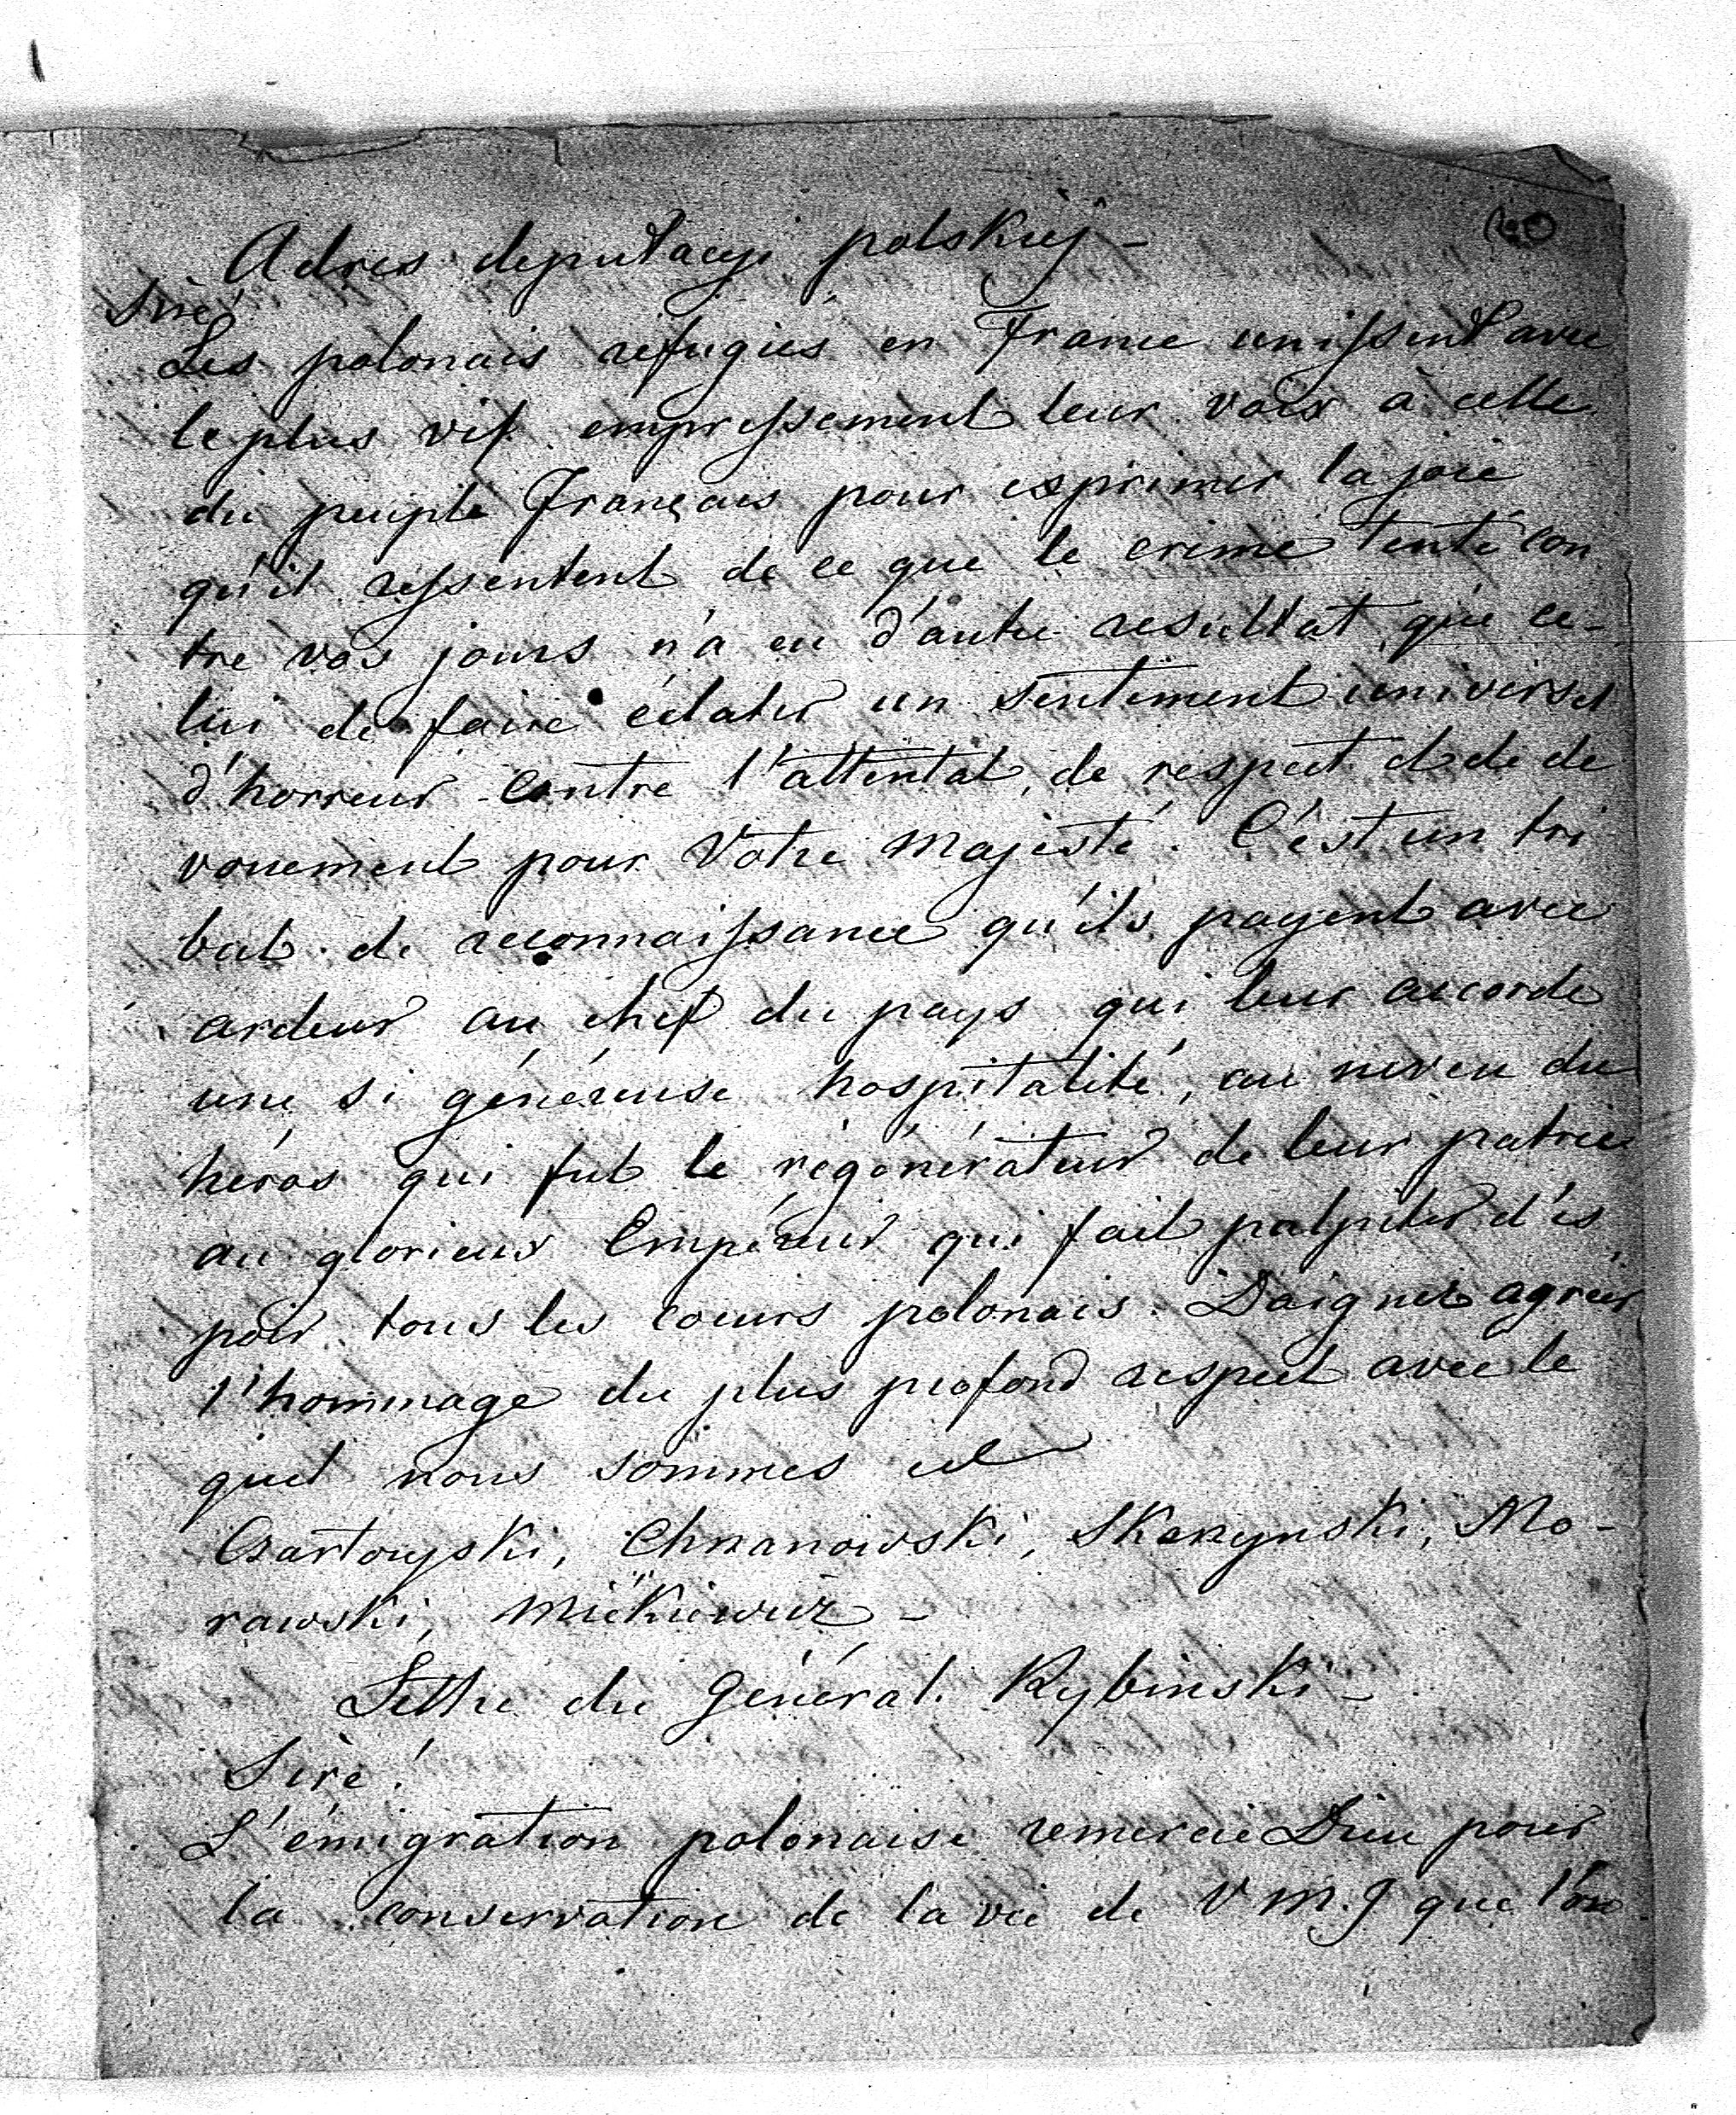 Adres deputacyi polskiéj -
Sire!
Les polonais refugiés en France unissent avec
le plus vif empressement leur voix à celle
du peuple Français pour exprimer la joie
qu'il ressentent de ce que le crime tenté con
tre vos jours n'a eu d'autre resultat que ce-
lui de faire éclater un sentiment universel
d'horreur contre l'attentat, de respect et de de
vouement pour Votre Majesté. C'est un tri
but de reconnaissance qu'ils payent avec
ardeur au chef du pays qui leur accorde
une si généreuse hospitalité, au neveu du
héros qui fut le régénérateur de leur patrie
au glorieux Empéreur qui fait palpiter d'es
poir tous les coeurs polonais. Daignez agréer
l'hommage du plus profond respect avec le
quel nous sommes
Czartoryski, Chrzanowski, Skarzynski, Mo-
rawski, Mickiewicz -
Lettre du Général Rybinski -
Sire!
L'émigration polonaise remercie Dieu pour
la conservation de la vie de V M. J que l'on